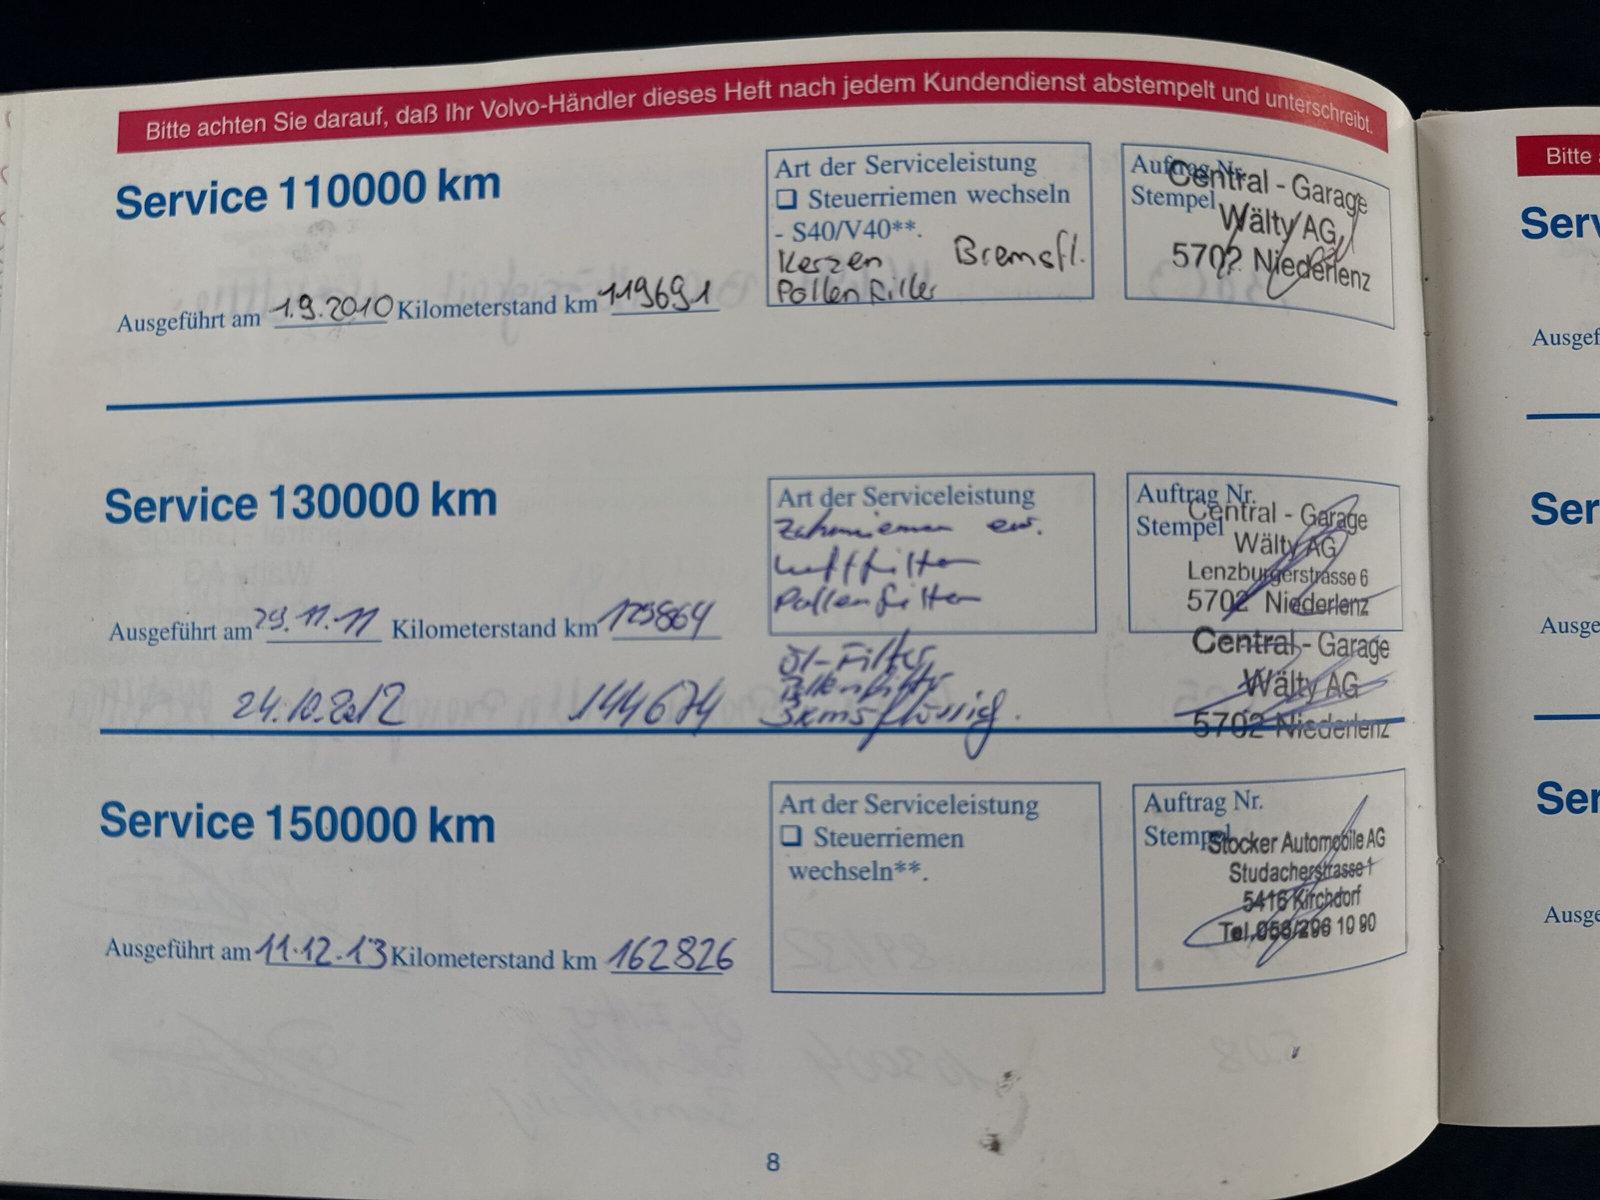 Bitte achten Sie darauf, daß Ihr Volvo-Händler dieses Heft nach jedem Kundendienst abstempelt und unterschreibt.
Service 110000 km
Art der Serviceleistung
❑ Steuerriemen wechseln
- S40/V40**.
Kerzen Bremsfl.
Pollenfilter
Auftrag Nr.
Stempel
Central - Garage
Wälty AG
5702 Niederlenz
Ausgeführt am 1.9.2010 Kilometerstand km 119691
Service 130000 km
Art der Serviceleistung
Zahnriemen er.
Luftfilter
Pollenfilter
Auftrag Nr.
Stempel
Central - Garage
Wälty AG
Lenzburgerstrasse 6
5702 Niederlenz
Ausgeführt am 29.11.11 Kilometerstand km 129864
24.10.2012 144674
Öl-Filter
Pollenfilter
Bremsflüssig.
Central - Garage
Wälty AG
5702 Niederlenz
Service 150000 km
Art der Serviceleistung
❑ Steuerriemen
wechseln**.
Auftrag Nr.
Stempel
Stocker Automobile AG
Studacherstrasse 1
5416 Kirchdorf
Tel. 056/296 10 90
Ausgeführt am 11.12.13 Kilometerstand km 162826
8
Bitte
Serv
Ausgef
Ser
Ausge
Ser
Ausge